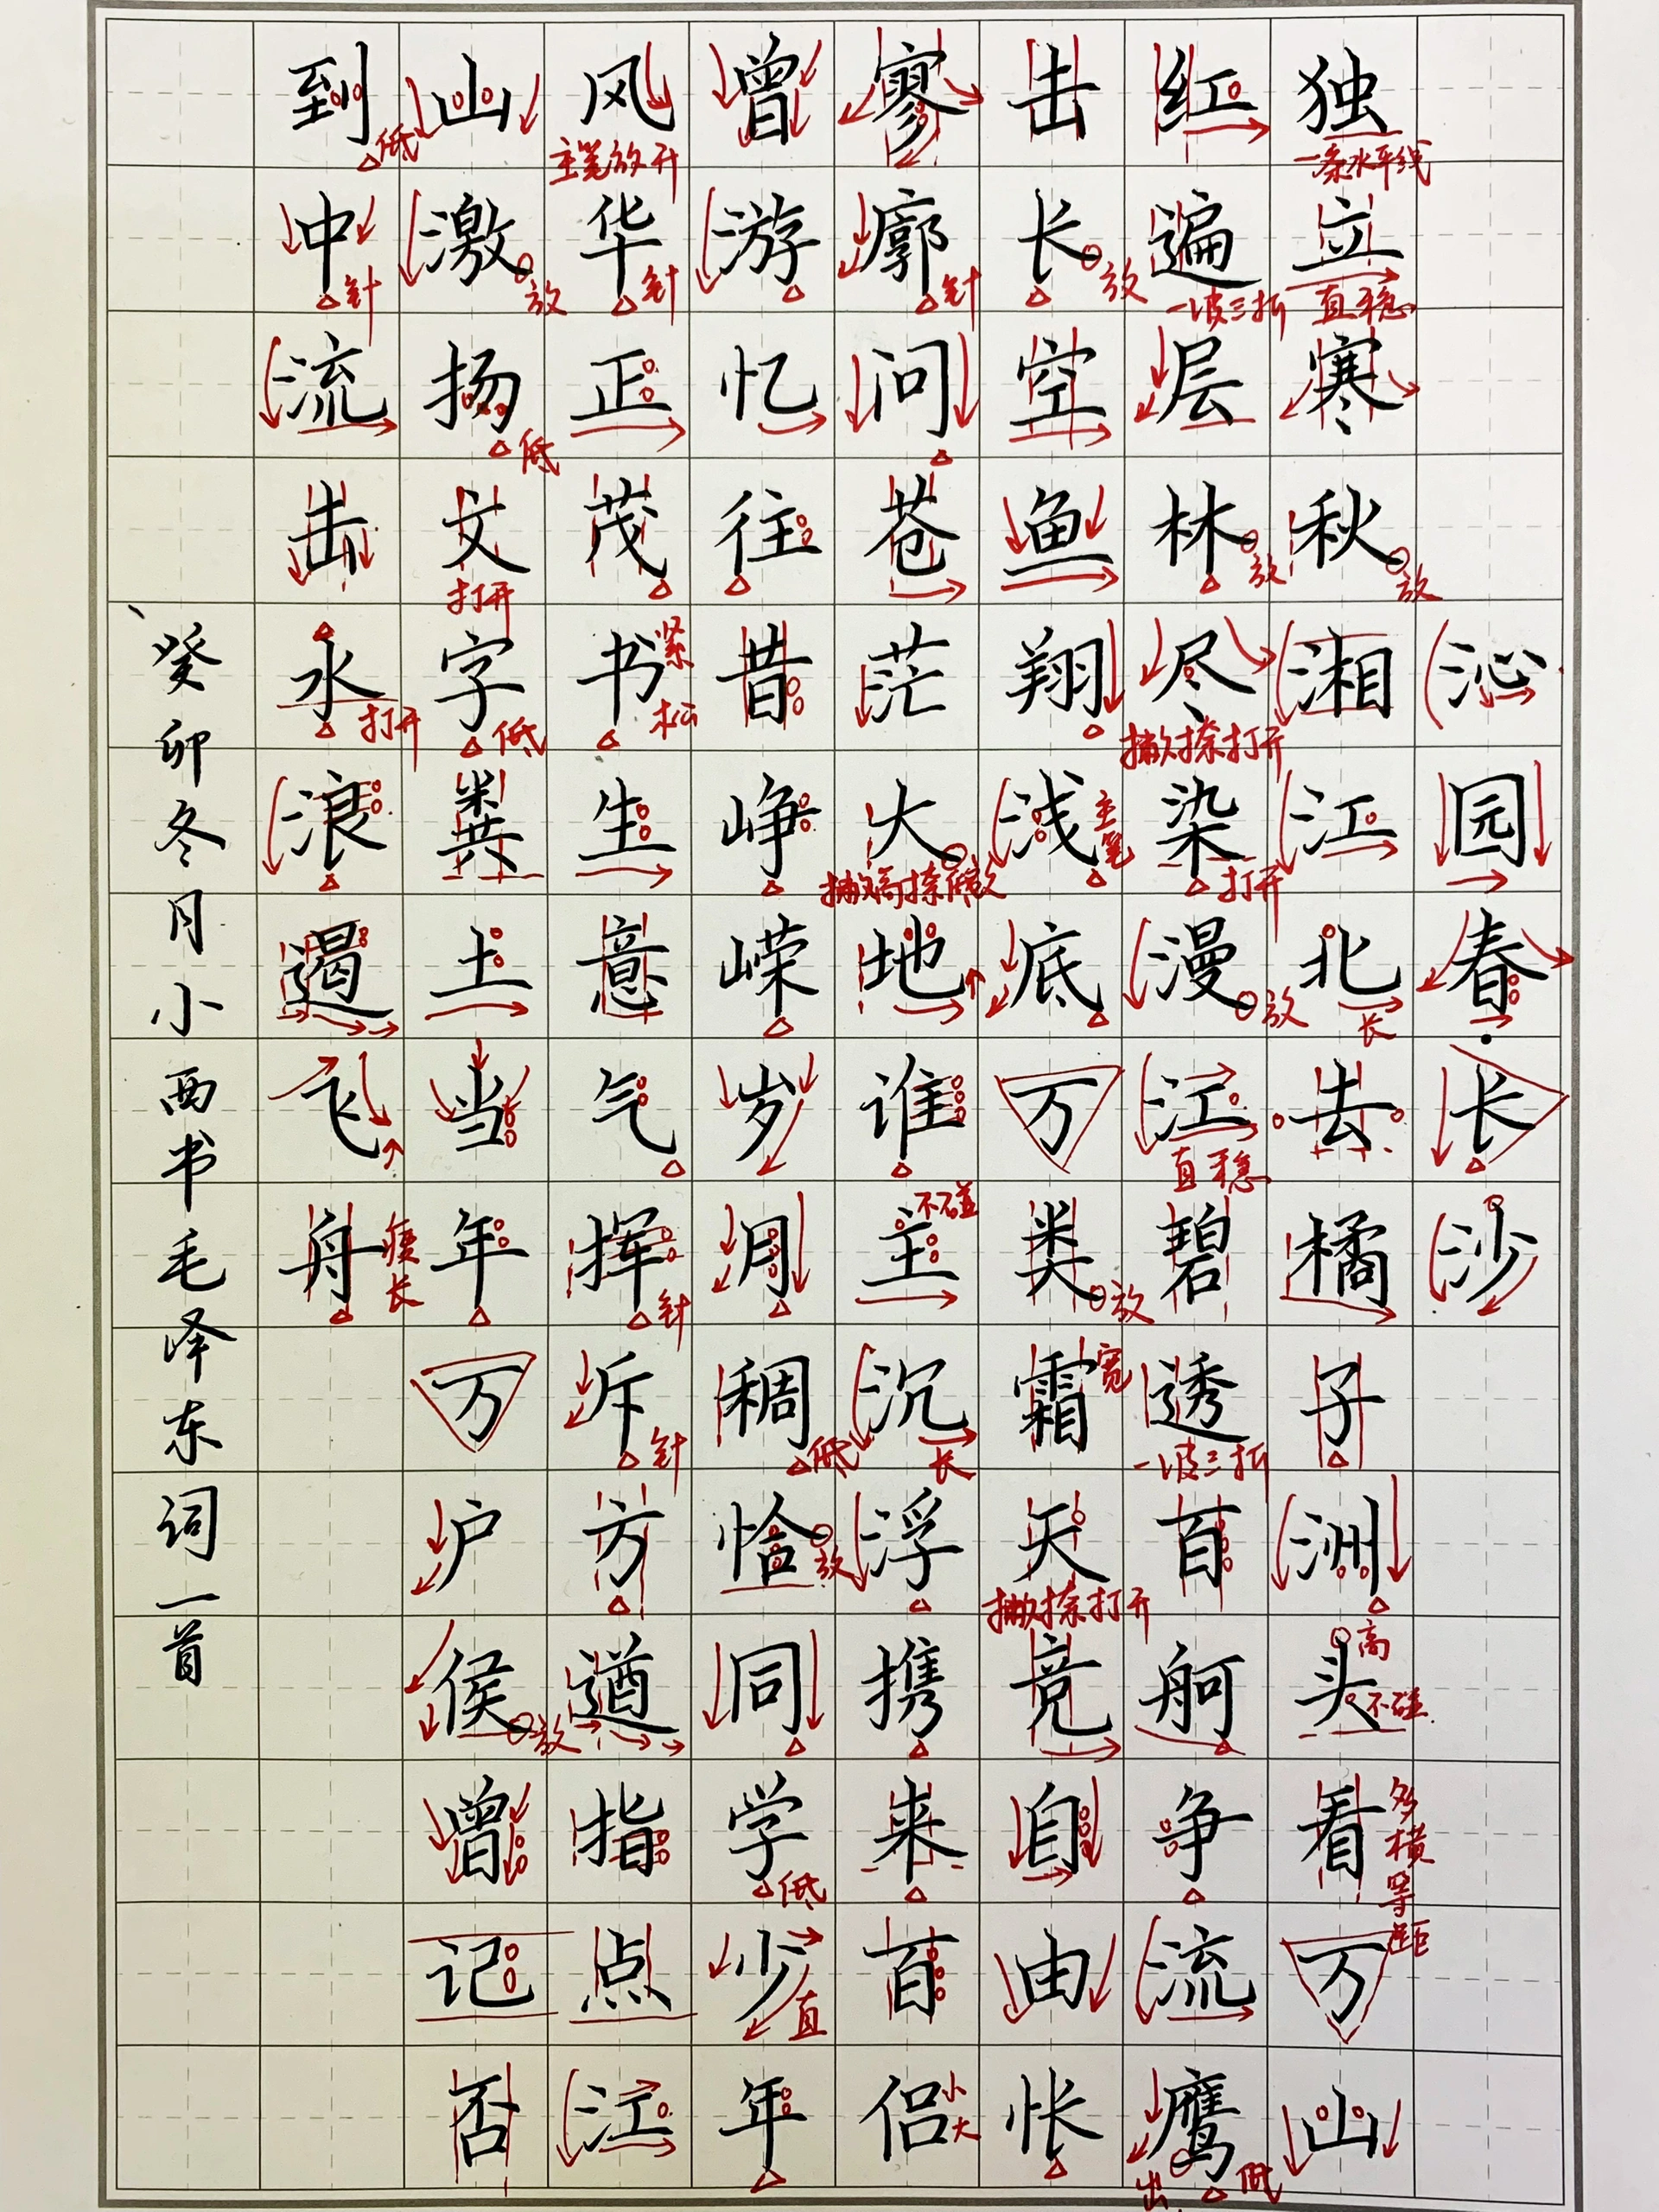 沁园春·长沙
独立寒秋湘江北去橘子洲头看万山
一条水平线
直稳
放
长
高
不碰
多横等距
红遍层林尽染漫江碧透百舸争流鹰
一波三折
放
撇捺打开
打开
放
直稳
一波三折
出
低
击长空鱼翔浅底万类霜天竞自由怅
放
主笔
放
宽
撇捺打开
寥廓问苍茫大地谁主沉浮携来百侣
针
不碰
长
小大
曾游忆往昔峥嵘岁月稠恰同学少年
低
放
低
直
风华正茂书生意气挥斥方遒指点江
主笔放开
针
紧
松
针
针
山激扬文字粪土当年万户侯曾记否
放
低
打开
低
放
到中流击水浪遏飞舟
低
针
打开
瘦长
癸卯冬月小西书毛泽东词一首